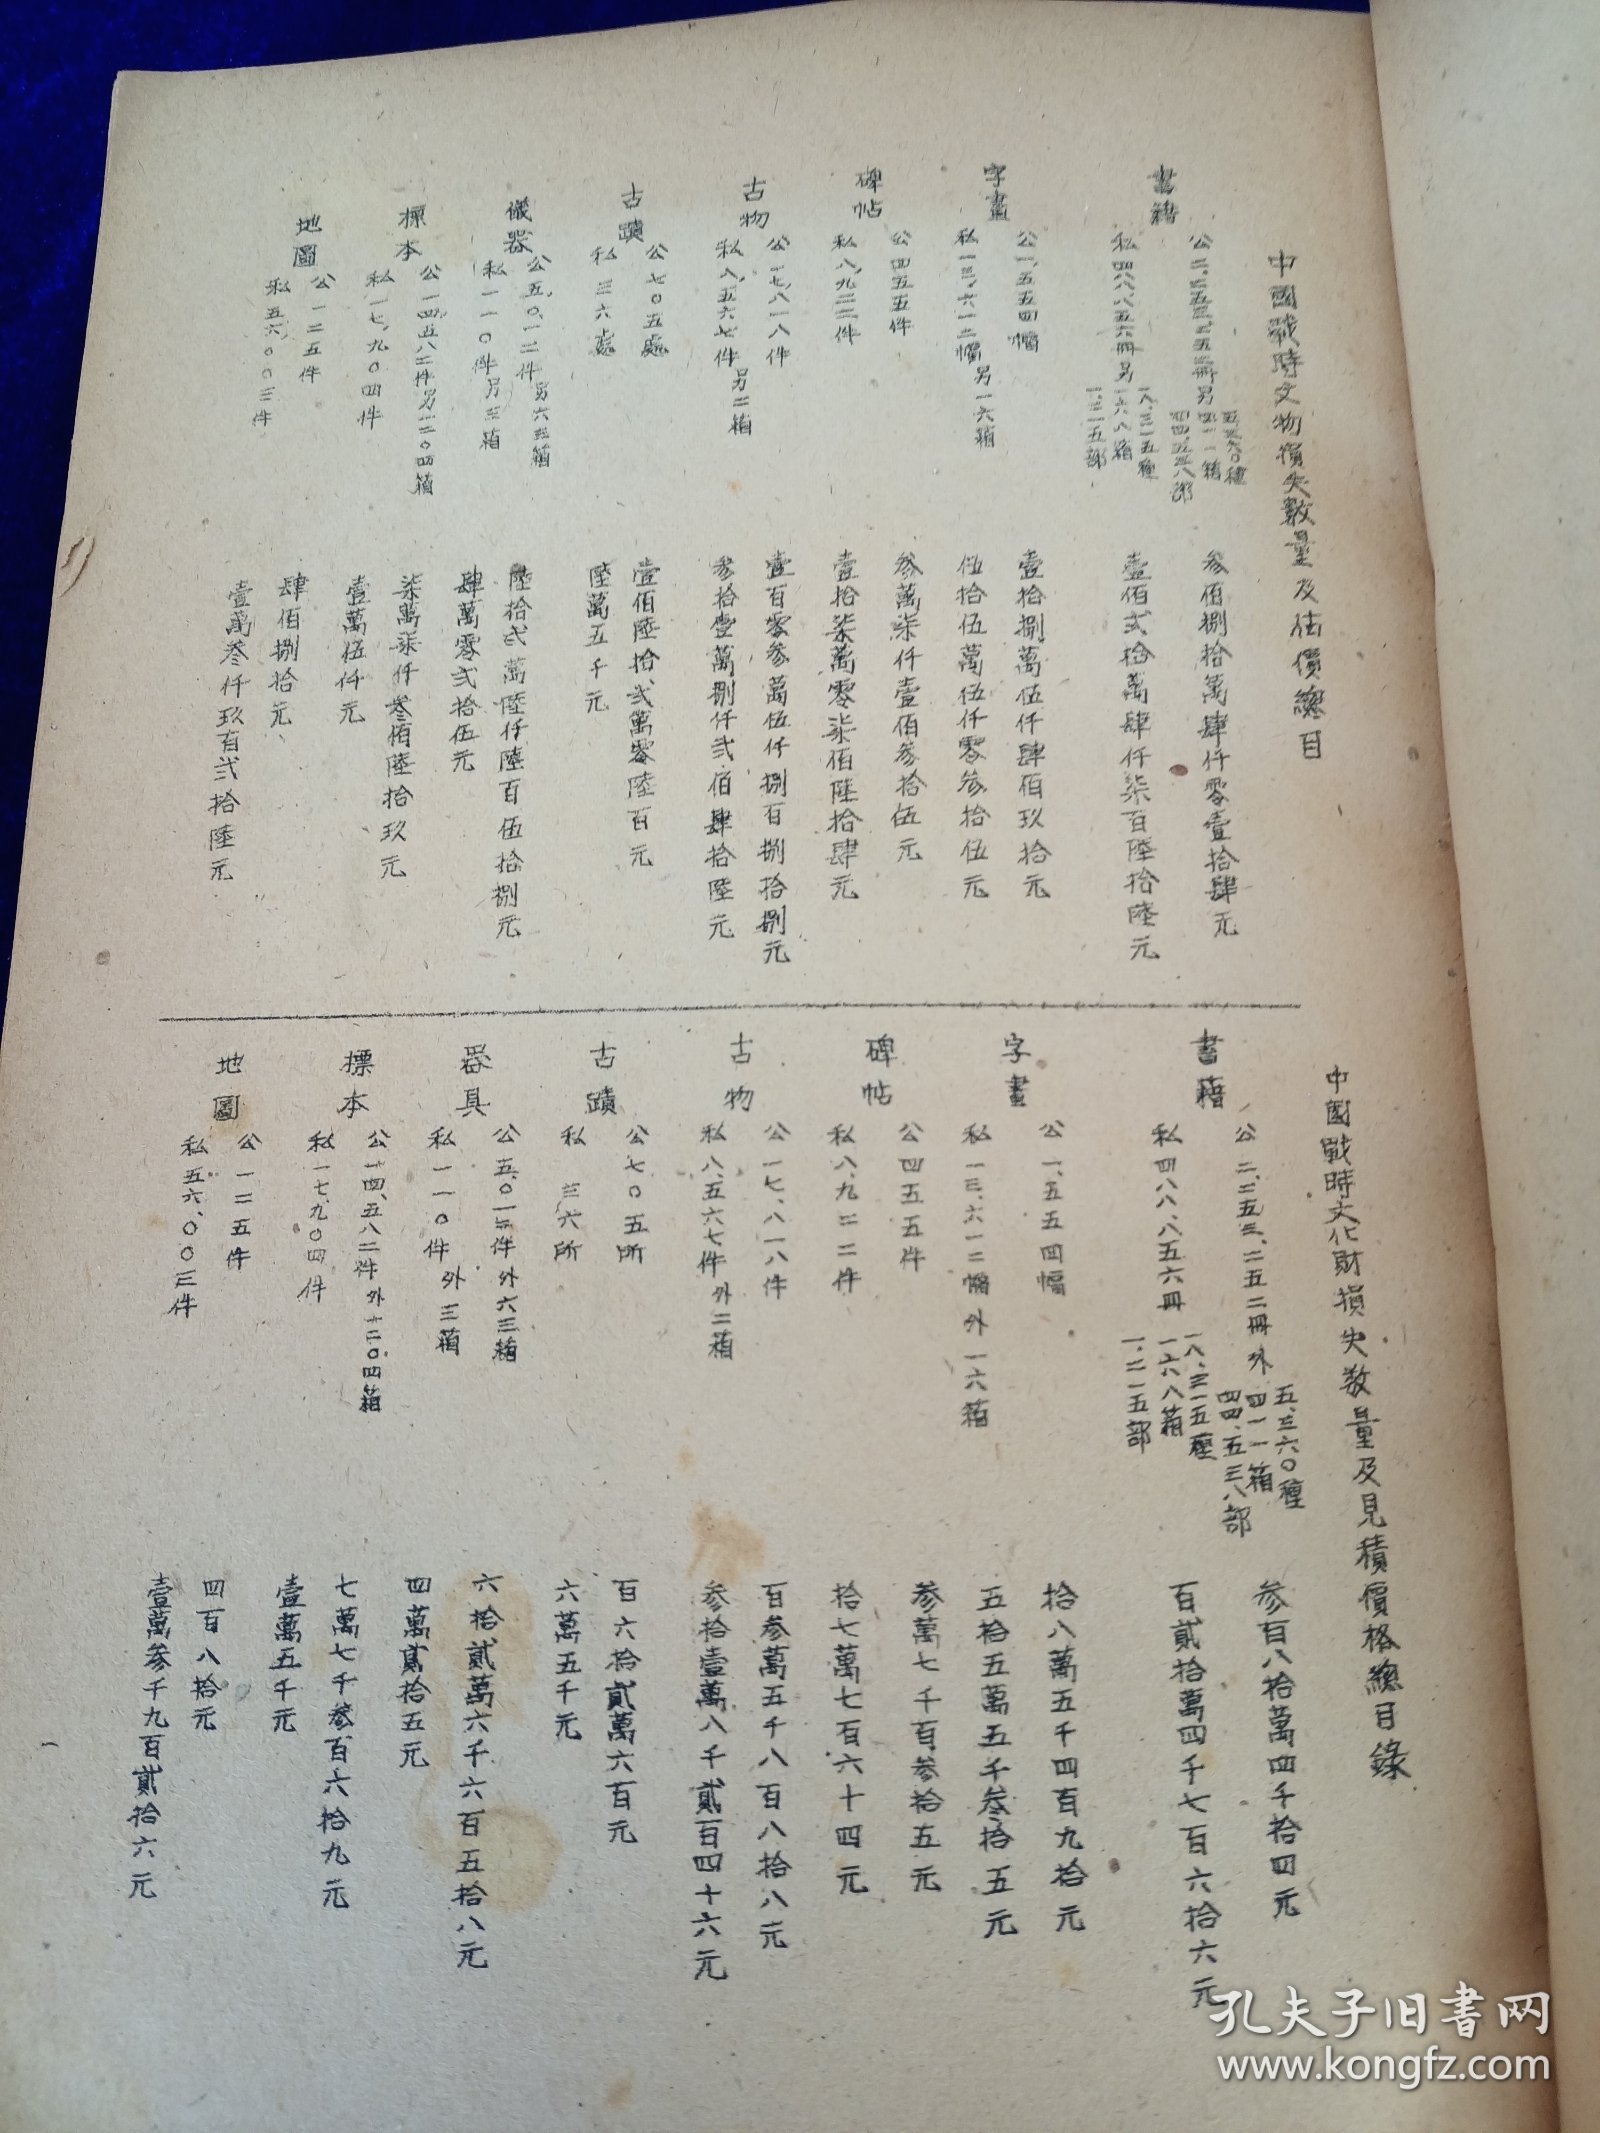 中國戰時文物損失數量及估價總目
書籍
公二、二五三、二五二冊另
五三六〇種
四一一箱
四四、五三八部
參佰捌拾萬肆仟零壹拾肆元
私四八八、八五六冊另
一八、三一五種
一六八箱
一、二一五部
壹佰弍拾萬肆仟柒百陸拾陸元
字畫
公一、五五四幅
壹拾捌萬伍仟肆佰玖拾元
私一三、六一二幅另一六箱
伍拾伍萬伍仟零參拾伍元
碑帖
公四五五件
參萬柒仟壹佰參拾伍元
私八、九二二件
壹拾柒萬零柒佰陸拾肆元
古物
公一七、八一八件
壹百零參萬伍仟捌百捌拾捌元
私八、五六七件另二箱
參拾壹萬捌仟弍佰肆拾陸元
古蹟
公七〇五處
壹佰陸拾弍萬零陸百元
私三六處
陸萬五千元
儀器
公五、〇一二件另六三箱
陸拾弍萬陸仟陸百伍拾捌元
私一一〇件另三箱
肆萬零弍拾伍元
標本
公一四五八二件另一二〇四箱
柒萬柒仟叁佰陸拾玖元
私一七、九〇四件
壹萬伍仟元
地圖
公一二五件
肆佰捌拾元
私五六、〇〇三件
壹萬叁仟玖百弍拾陸元
中國戰時文化財損失数量及見積價格總目錄
書籍
公二、二五三、二五二冊外
五、三六〇種
四一一箱
四四、五三八部
参百八拾萬四千拾四元
私四八八、八五六冊
一八、三一五種
一六八箱
一、二一五部
百貳拾萬四千七百六拾六元
字畫
公一、五五四幅
拾八萬五千四百九拾元
私一三、六一二幅外一六箱
五拾五萬五千叁拾五元
碑帖
公四五五件
参萬七千百参拾五元
私八、九二二件
拾七萬七百六十四元
古物
公一七、八一八件
百参萬五千八百八拾八元
私八、五六七件外二箱
参拾壹萬八千貳百四十六元
古蹟
公七〇五所
百六拾貳萬六百元
私三六所
六萬五千元
器具
公五、〇一二件外六三箱
六拾貳萬六千六百五拾八元
私一一〇件外三箱
四萬貳拾五元
標本
公一四、五八二件外一二〇四箱
七萬七千叁百六拾九元
私一七、九〇四件
壹萬五千元
地圖
公一二五件
四百八拾元
私五六、〇〇三件
壹萬参千九百貳拾六元
孔夫子旧书网
www.kongfz.com